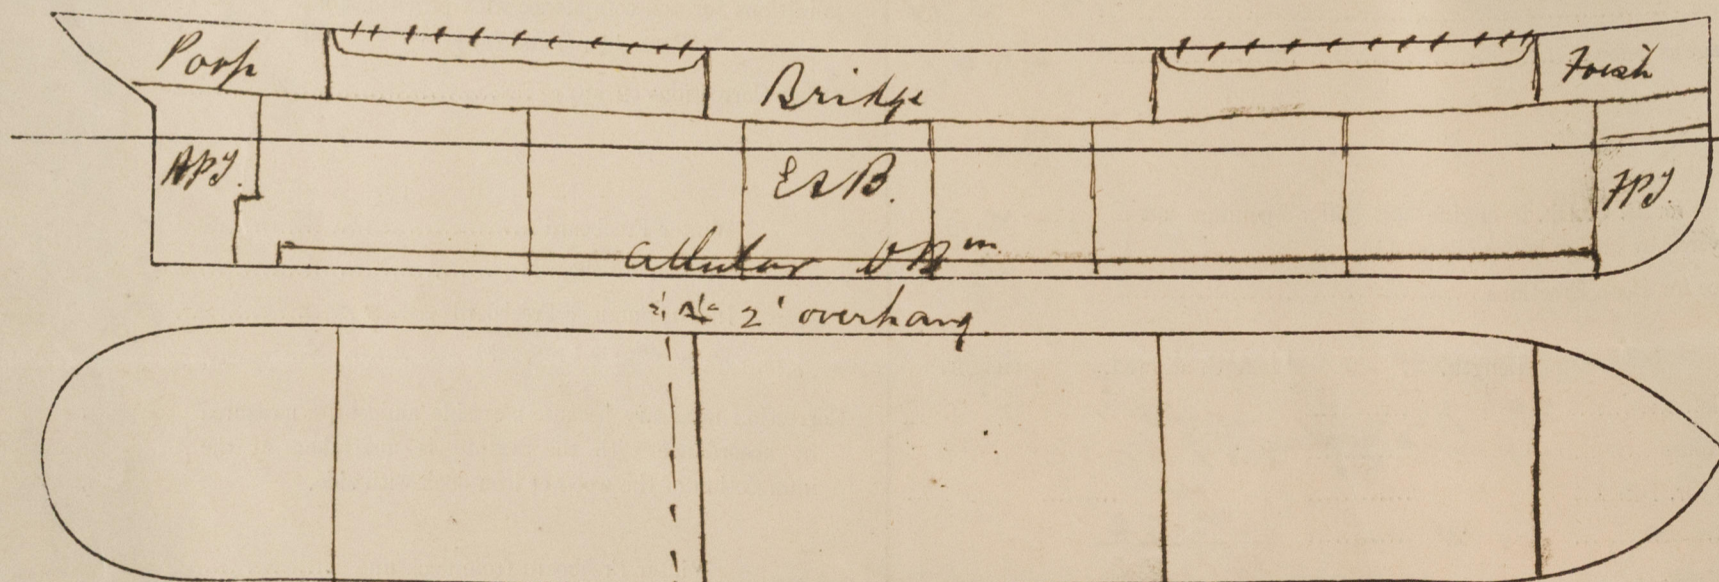 Poop
Bridge
Fo'csle
APT.
E & B.
FPT.
Cellular DBm
2' overhang.